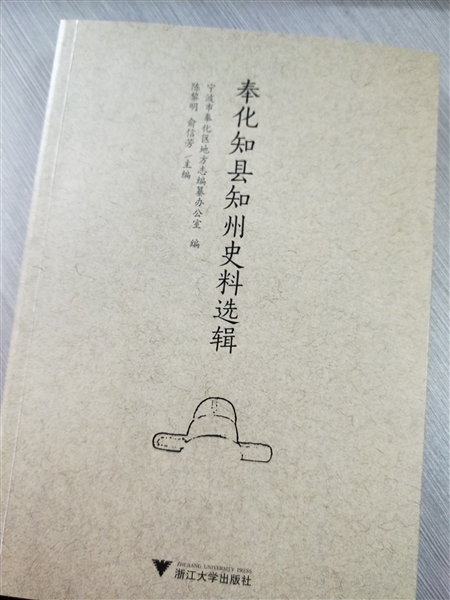 奉化知县知州史料选辑
宁波市奉化区地方志编纂办公室 编
陈黎明 俞信芳/主编
ZHEJIANG UNIVERSITY PRESS
浙江大学出版社